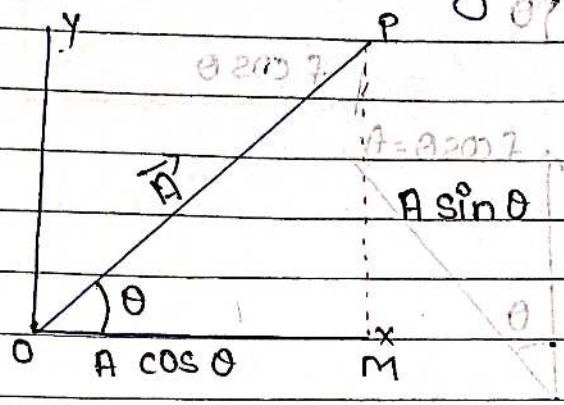 y
P
A⃗
A sin θ
θ
O
A cos θ
M
x